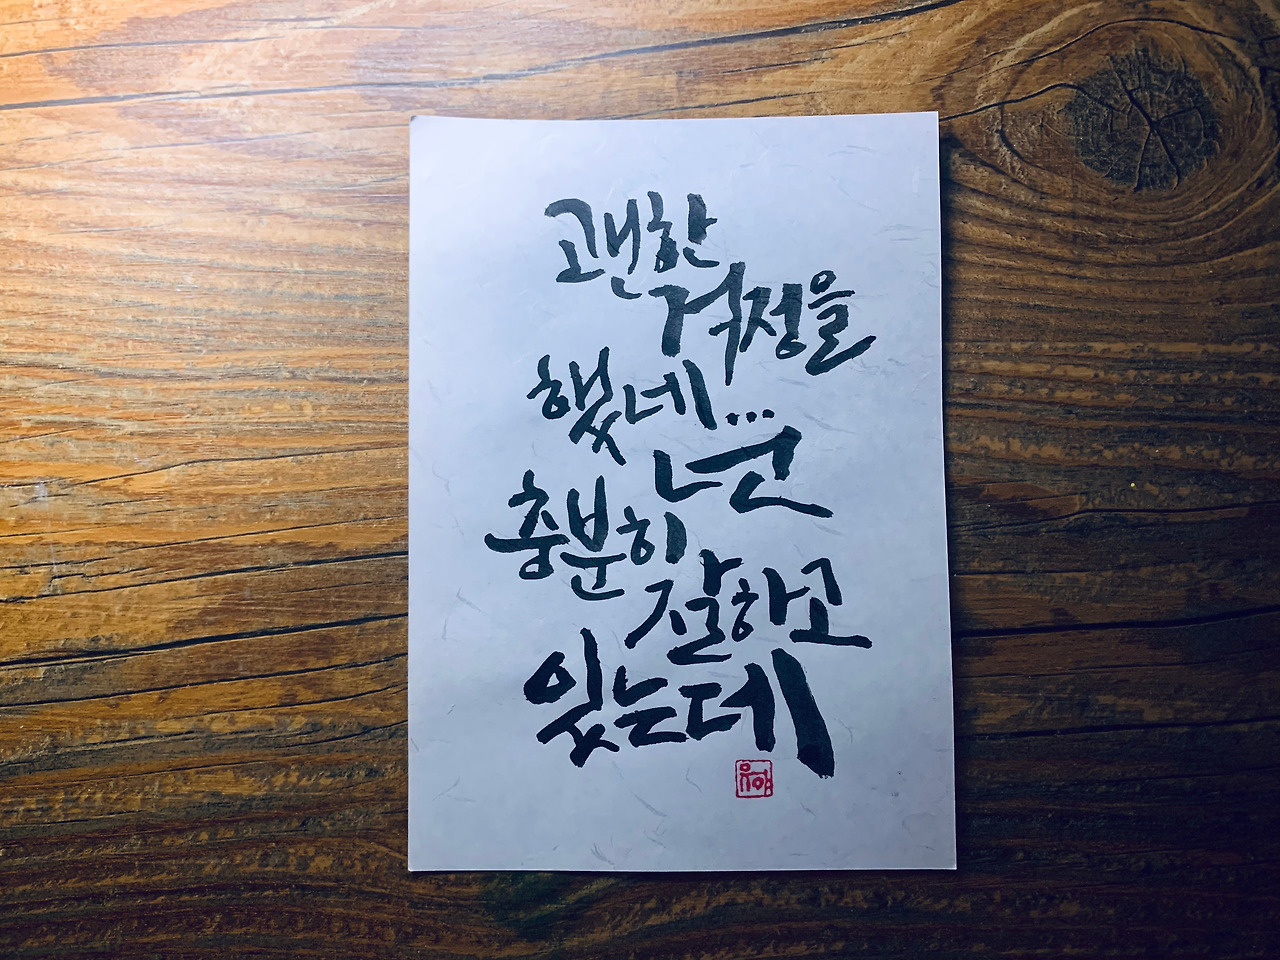 괜한
걱정을
했네...
넌
충분히
잘하고
있는데